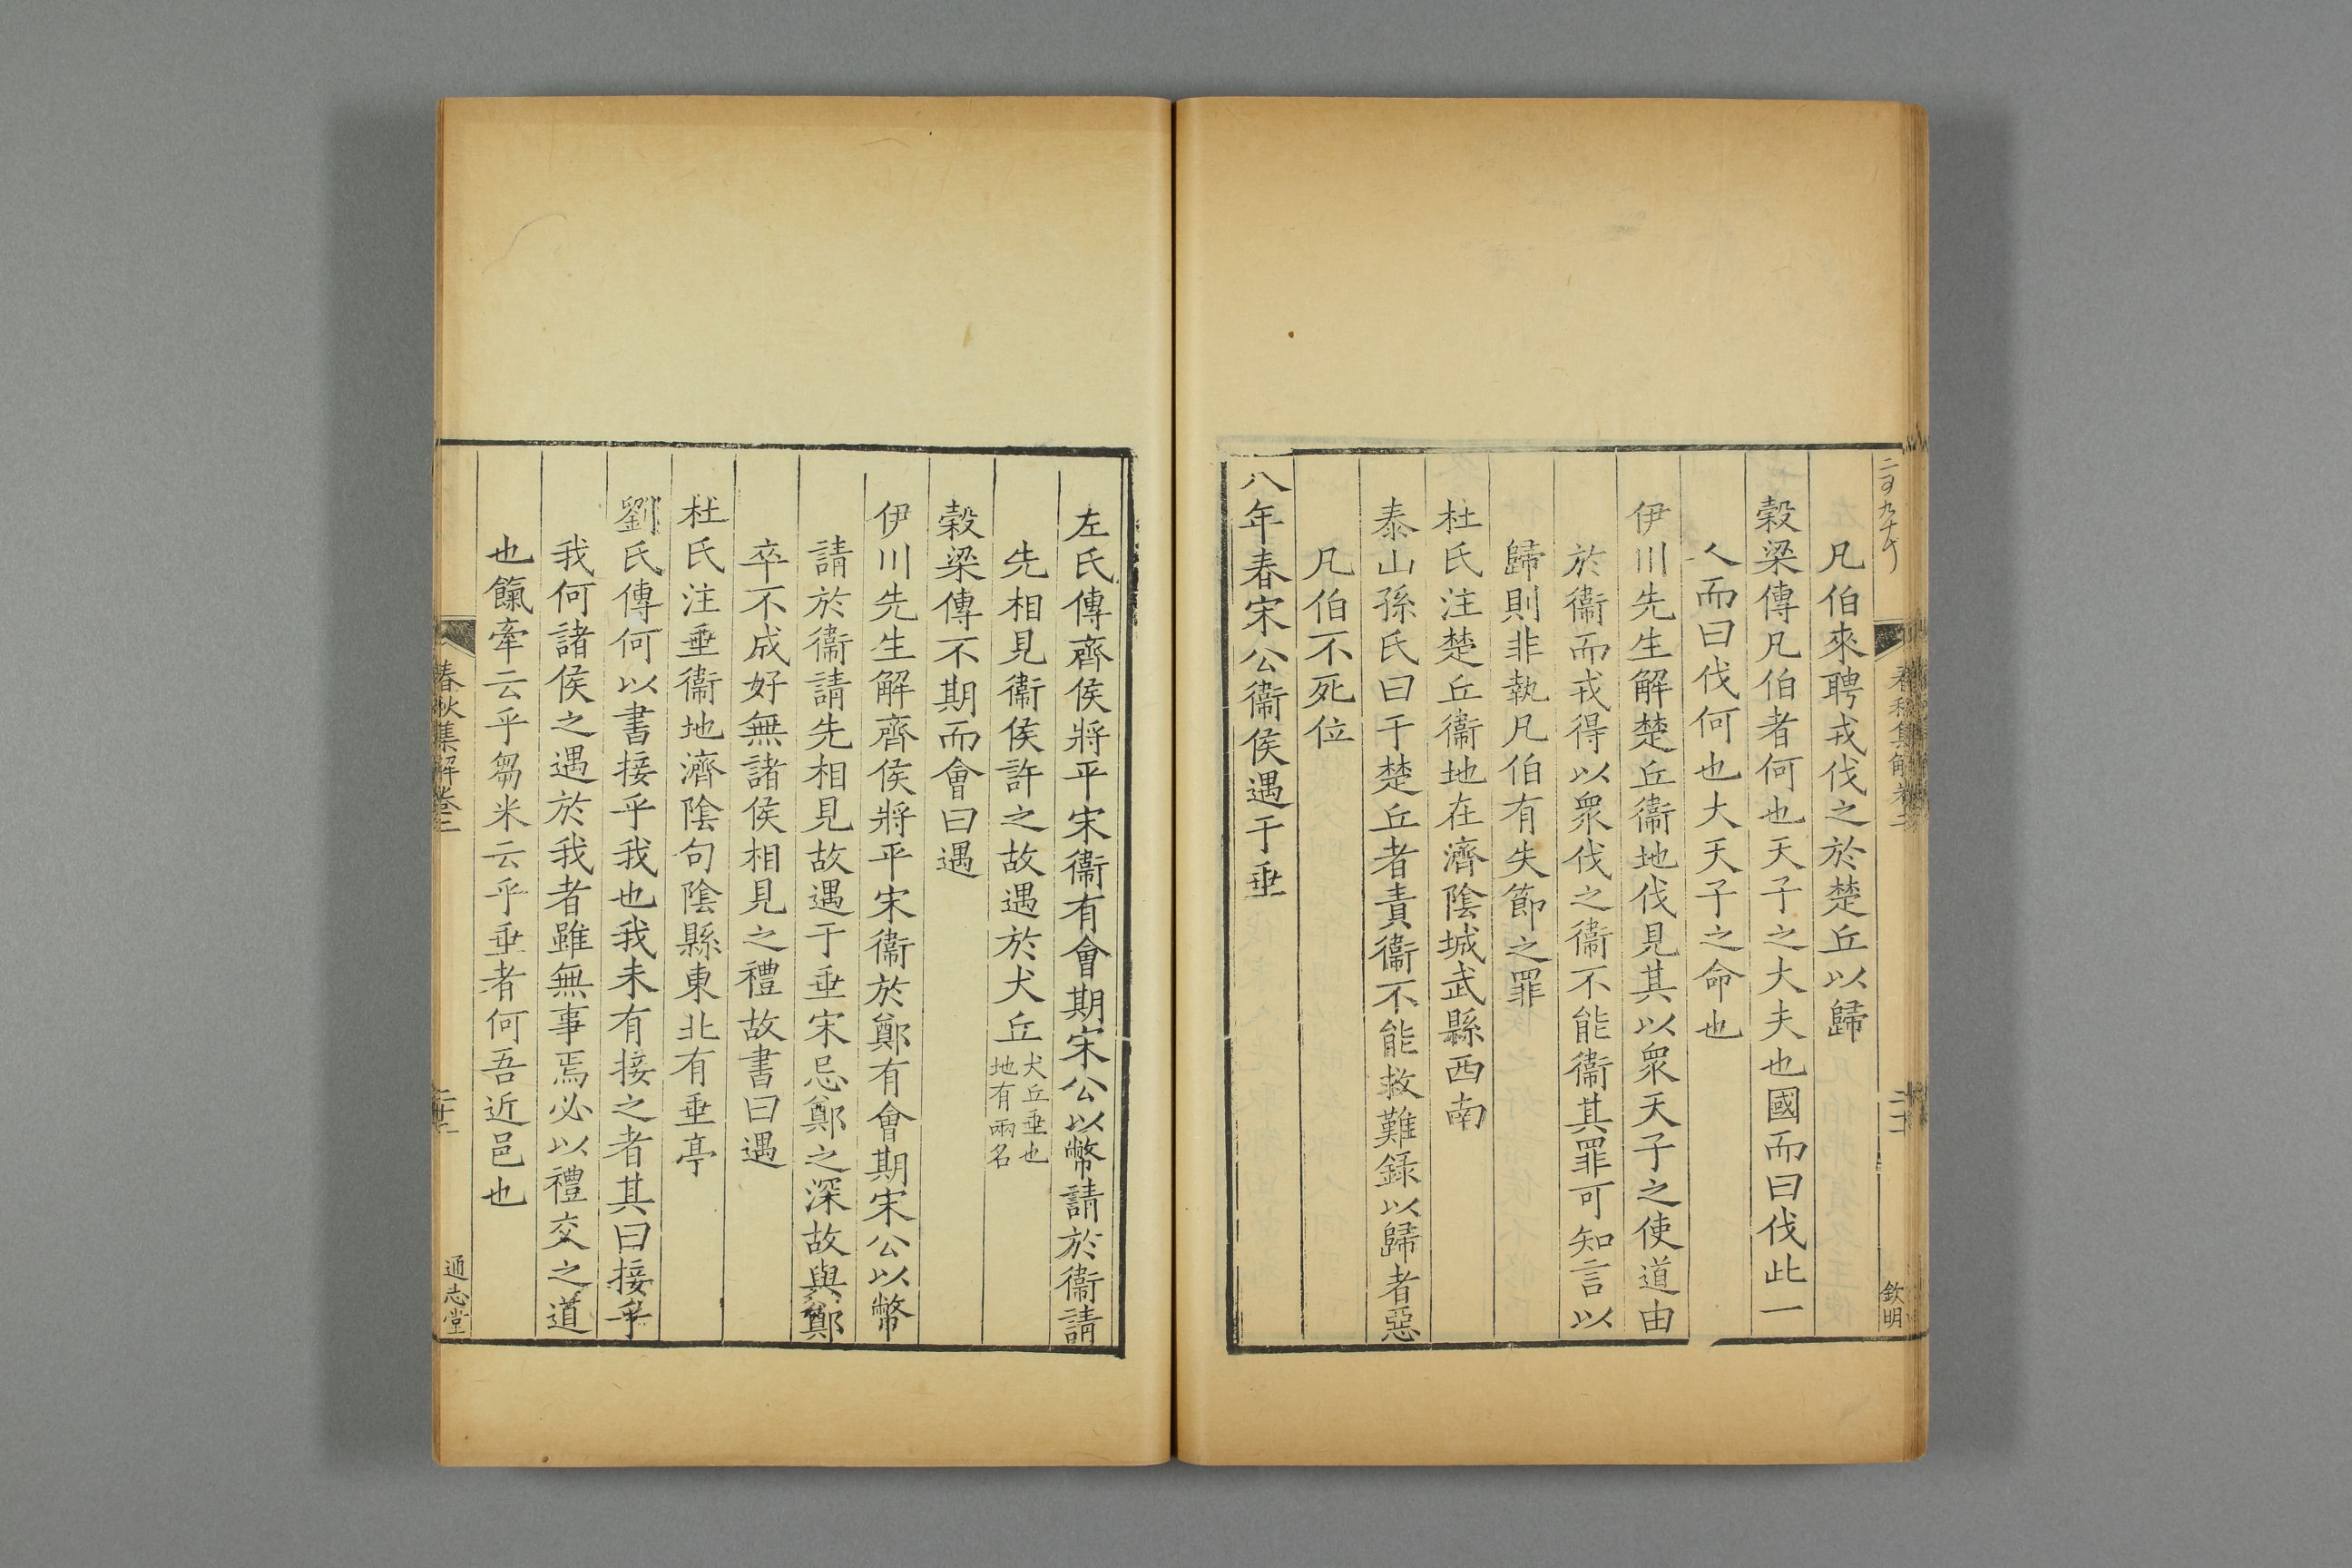 春秋集解卷二
欽明
凡伯來聘戎伐之於楚丘以歸
穀梁傳凡伯者何也天子之大夫也國而曰伐此一
人而曰伐何也大天子之命也
伊川先生解楚丘衞地伐見其以衆天子之使道由
於衞而戎得以衆伐之衞不能衞其罪可知言以
歸則非執凡伯有失節之罪
杜氏注楚丘衞地在濟陰城武縣西南
泰山孫氏曰于楚丘者責衞不能救難録以歸者惡
凡伯不死位
八年春宋公衞侯遇于垂
左氏傳齊侯將平宋衞有會期宋公以幣請於衞請
先相見衞侯許之故遇於犬丘犬丘垂也地有兩名
穀梁傳不期而會曰遇
伊川先生解齊侯將平宋衞於鄭有會期宋公以幣
請於衞請先相見故遇于垂宋忌鄭之深故與鄭
卒不成好無諸侯相見之禮故書曰遇
杜氏注垂衞地濟陰句陰縣東北有垂亭
劉氏傳何以書接乎我也我未有接之者其曰接乎
我何諸侯之遇於我者雖無事焉必以禮交之道
也餼牽云乎芻米云乎垂者何吾近邑也
春秋集解卷二
通志堂